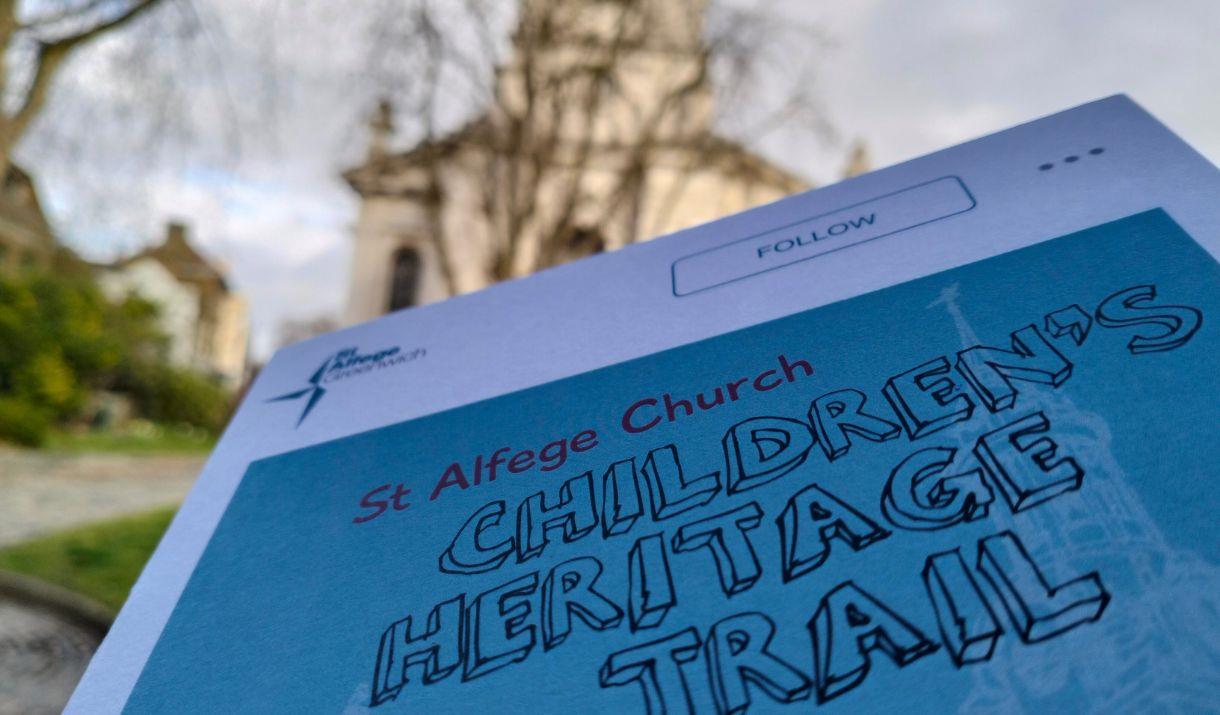 FOLLOW
St
Alfege
Greenwich
St Alfege Church
CHILDREN'S
HERITAGE
TRAIL